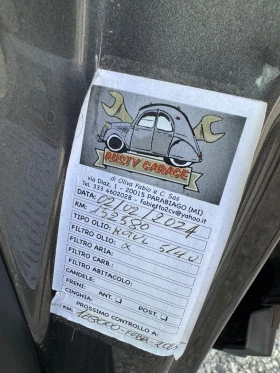 RUSTY GARAGE
di Oliva Fabio e C. Sas
via Diaz, 1 - 20015 PARABIAGO (MI)
Tel. 333 4602028 - fabietto2cv@yahoo.it
DATA: 02/02/2024
KM: 152880
TIPO OLIO: MOTUL
FILTRO OLIO: X
FILTRO ARIA:
FILTRO CARB.
FILTRO ABITACOLO:
CANDELE:
FRENI: ANT. POST.
CINGHIA:
PROSSIMO CONTROLLO A:
KM: